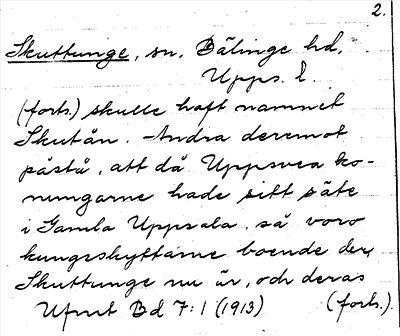 2.
Skuttunge, sn, Bälinge hd,
Upps. l.
(forts.) skulle haft namnet
Skutån. Andra deremot
påstå, att då Uppsvea ko-
nungarne hade sitt säte
i Gamla Uppsala, så voro
kungsskyttarne boende der,
Skuttunge nu är, och deras
Ufmt Bd 7:1 (1913) (forts.)